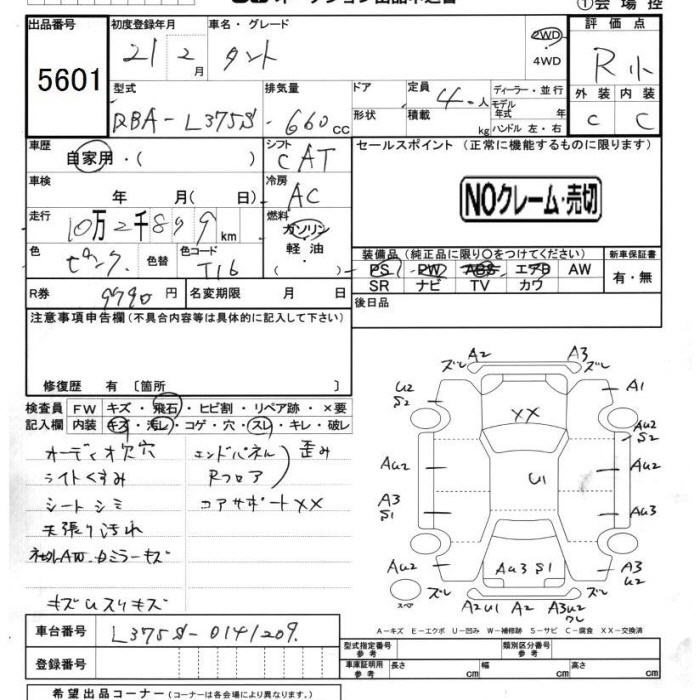 ①会場控
出品番号
5601
初度登録年月
21 2月
車名・グレード
タント
2WD
・
4WD
評価点
R小
外装 内装
C C
型式
DBA-L375S
排気量
660cc
ドア
形状
定員
4人
積載
kg
ディーラー・並行
モデル年式 年
ハンドル 左・右
車歴
自家用・( )
シフト
CAT
車検
年 月( 日)
冷房
AC
走行
10万2千899km
燃料
ガソリン
軽油・
( )
色
ピンク
色替
色コード
T16
R券
9790円
名変期限 月 日
セールスポイント (正常に機能するものに限ります)
NOクレーム・売切
装備品(純正品に限り○をつけてください)
PS PW ABS エアB AW
SR ナビ TV カワ
新車保証書
有・無
後日品
注意事項申告欄(不具合内容等は具体的に記入して下さい)
修復歴 有 〔箇所 〕
検査員 FW キズ・飛石・ヒビ割・リペア跡・×要
記入欄 内装 キズ・汚レ・コゲ・穴・スレ・キレ・破レ
オーディオ欠 穴
ライトくすみ
シート シミ
天張り汚れ
ミラーキズ
キズUスリキズ
エンドパネル
Rフロア
歪み
コアサポートXX
ズレ A2 A3 ズレ
U2
S2
A1
XX
AU2
S2
AU2
AU2
U1
A3
S1
AU3
AU2
AU3 S1
A3
U2
スペア
ズレ A2U1 A2 A3U2 ズレ
ワレ
A-キズ E-エクボ U-凹み W-補修跡 S-サビ C-腐食 XX-交換済
車台番号
L375S-0141209
登録番号
型式指定番号
参考
類別区分番号
参考
車庫証明用
参考
長さ cm 幅 cm 高さ cm
希望出品コーナー(コーナーは各会場により異なります。)